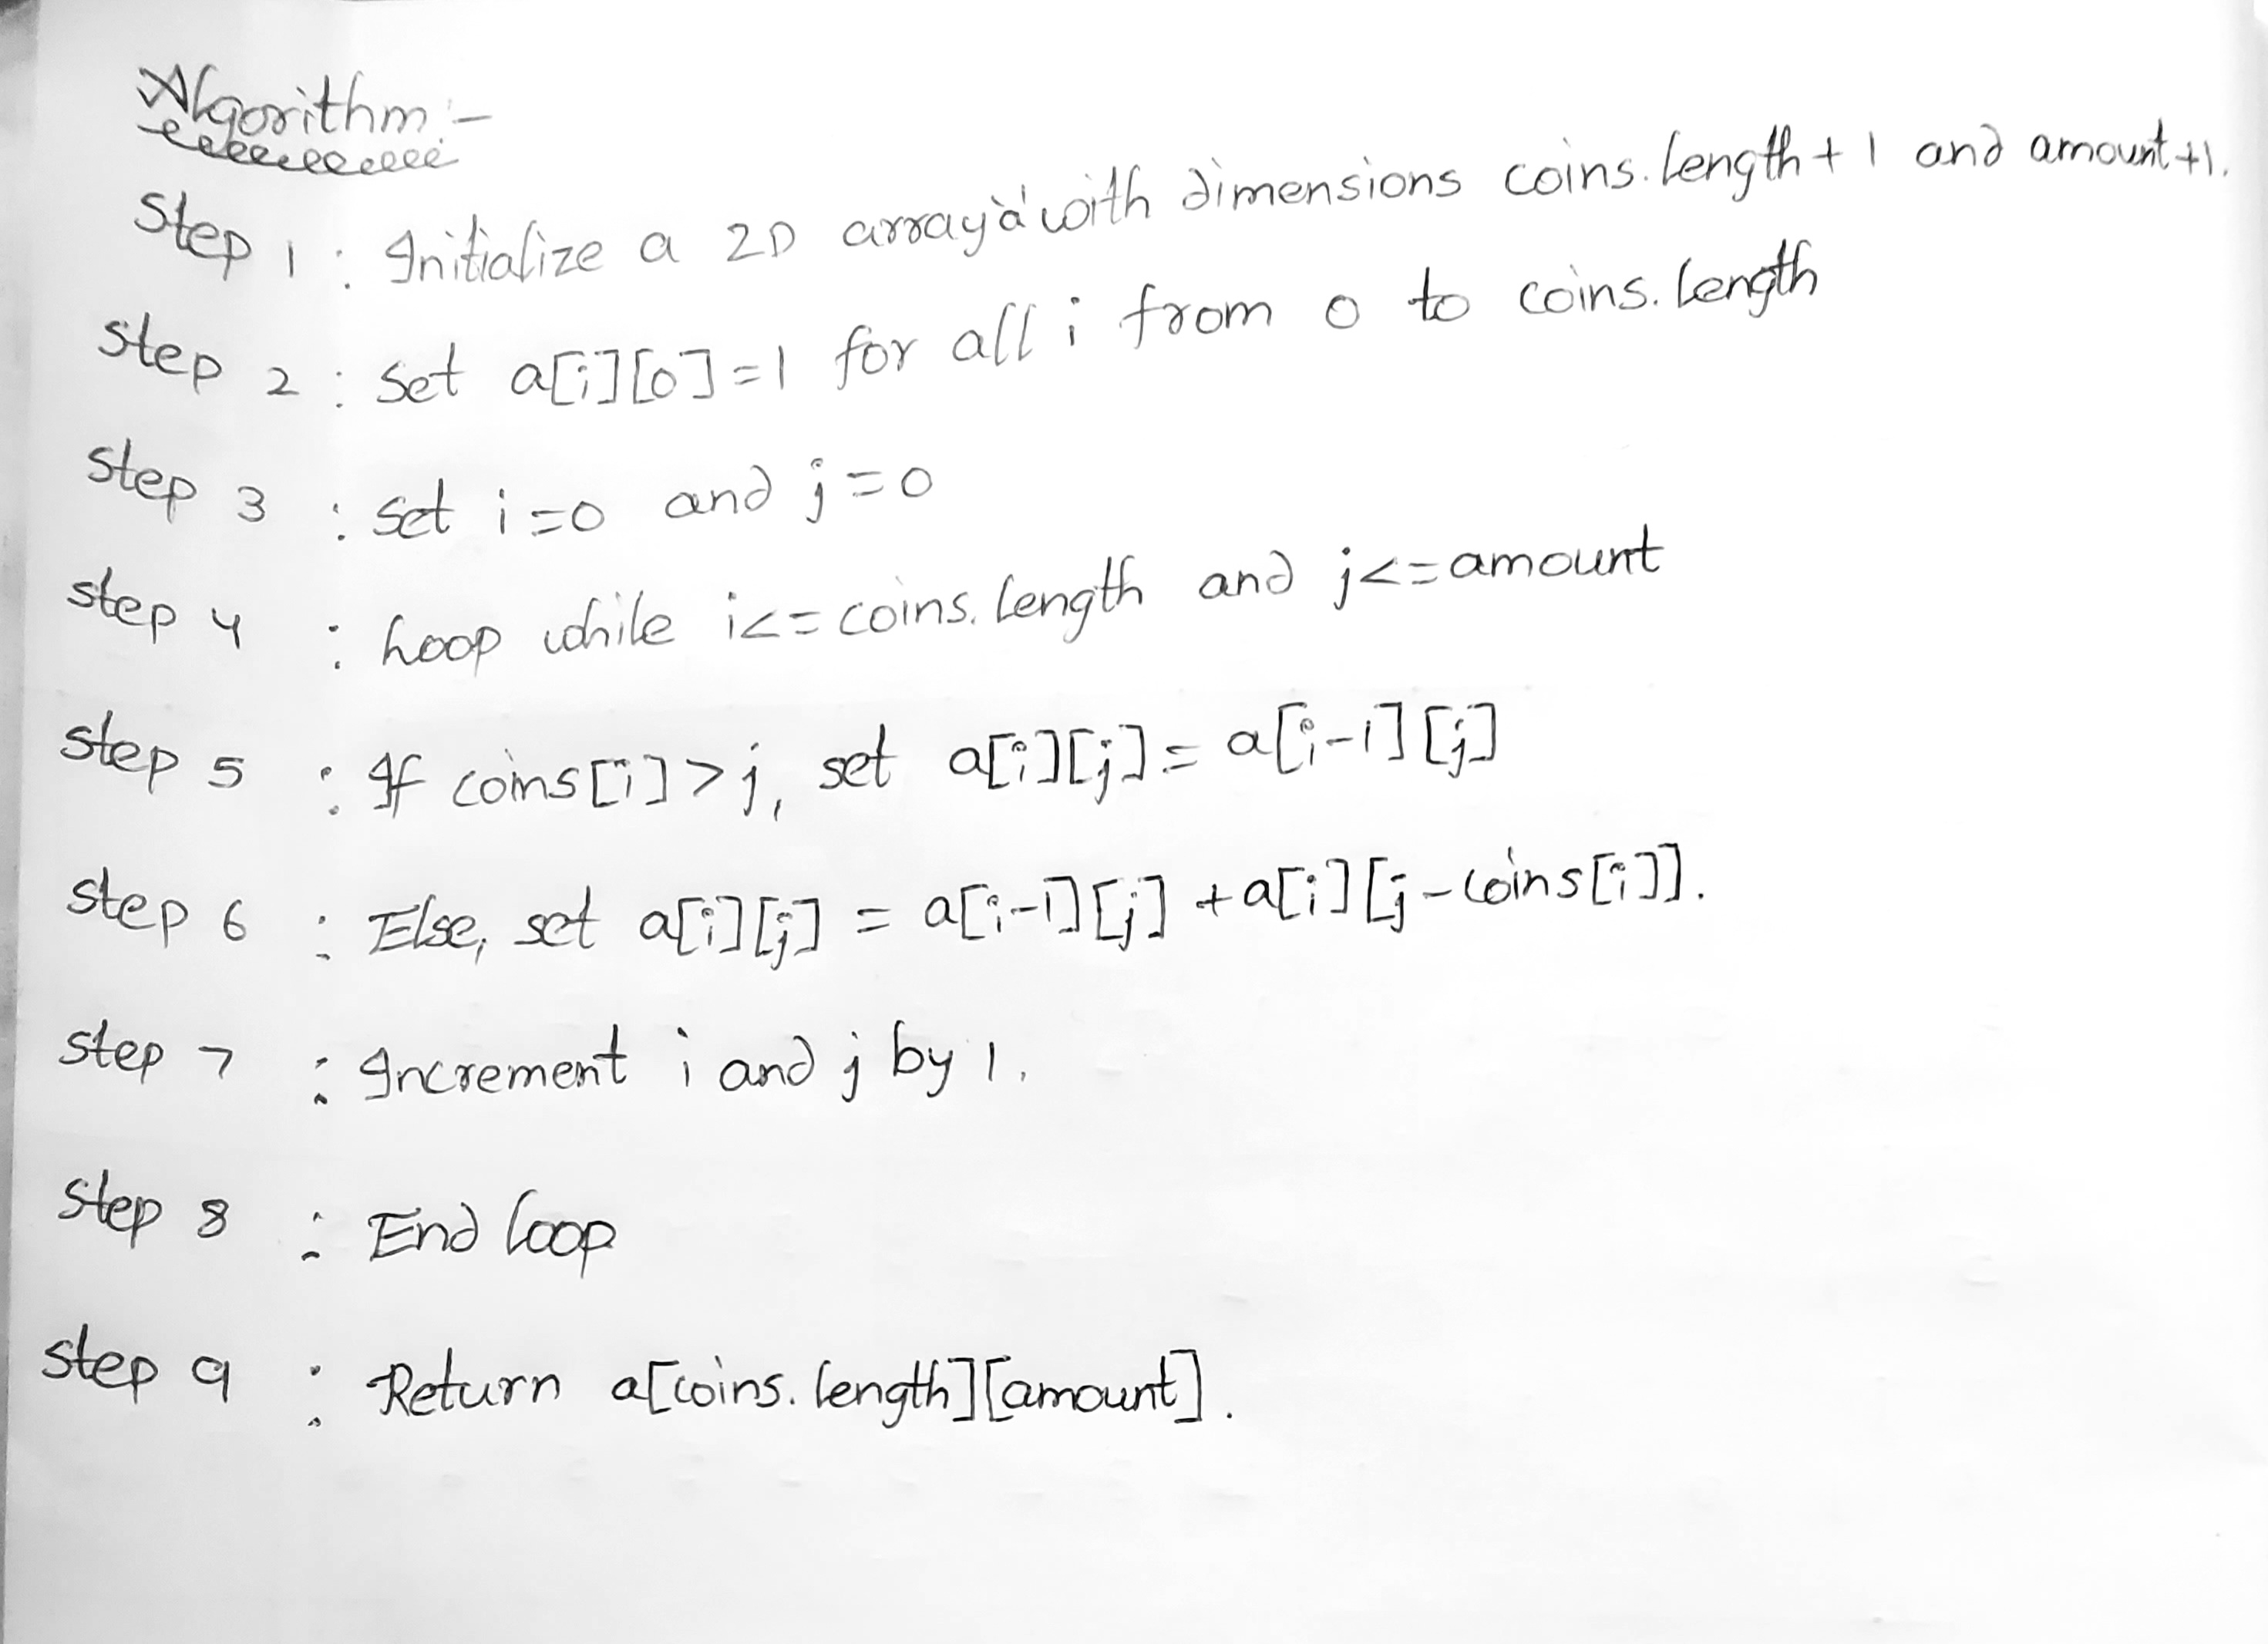 Algorithm :-
Step 1 : Initialize a 2D array 'a' with dimensions coins.length + 1 and amount +1.
Step 2 : Set a[i][0] = 1 for all i from 0 to coins.length
Step 3 : Set i = 0 and j = 0
Step 4 : Loop while i <= coins.length and j <= amount
Step 5 : If coins[i] > j, set a[i][j] = a[i-1][j]
Step 6 : Else, set a[i][j] = a[i-1][j] + a[i][j-coins[i]].
Step 7 : Increment i and j by 1.
Step 8 : End loop
Step 9 : Return a[coins.length][amount].